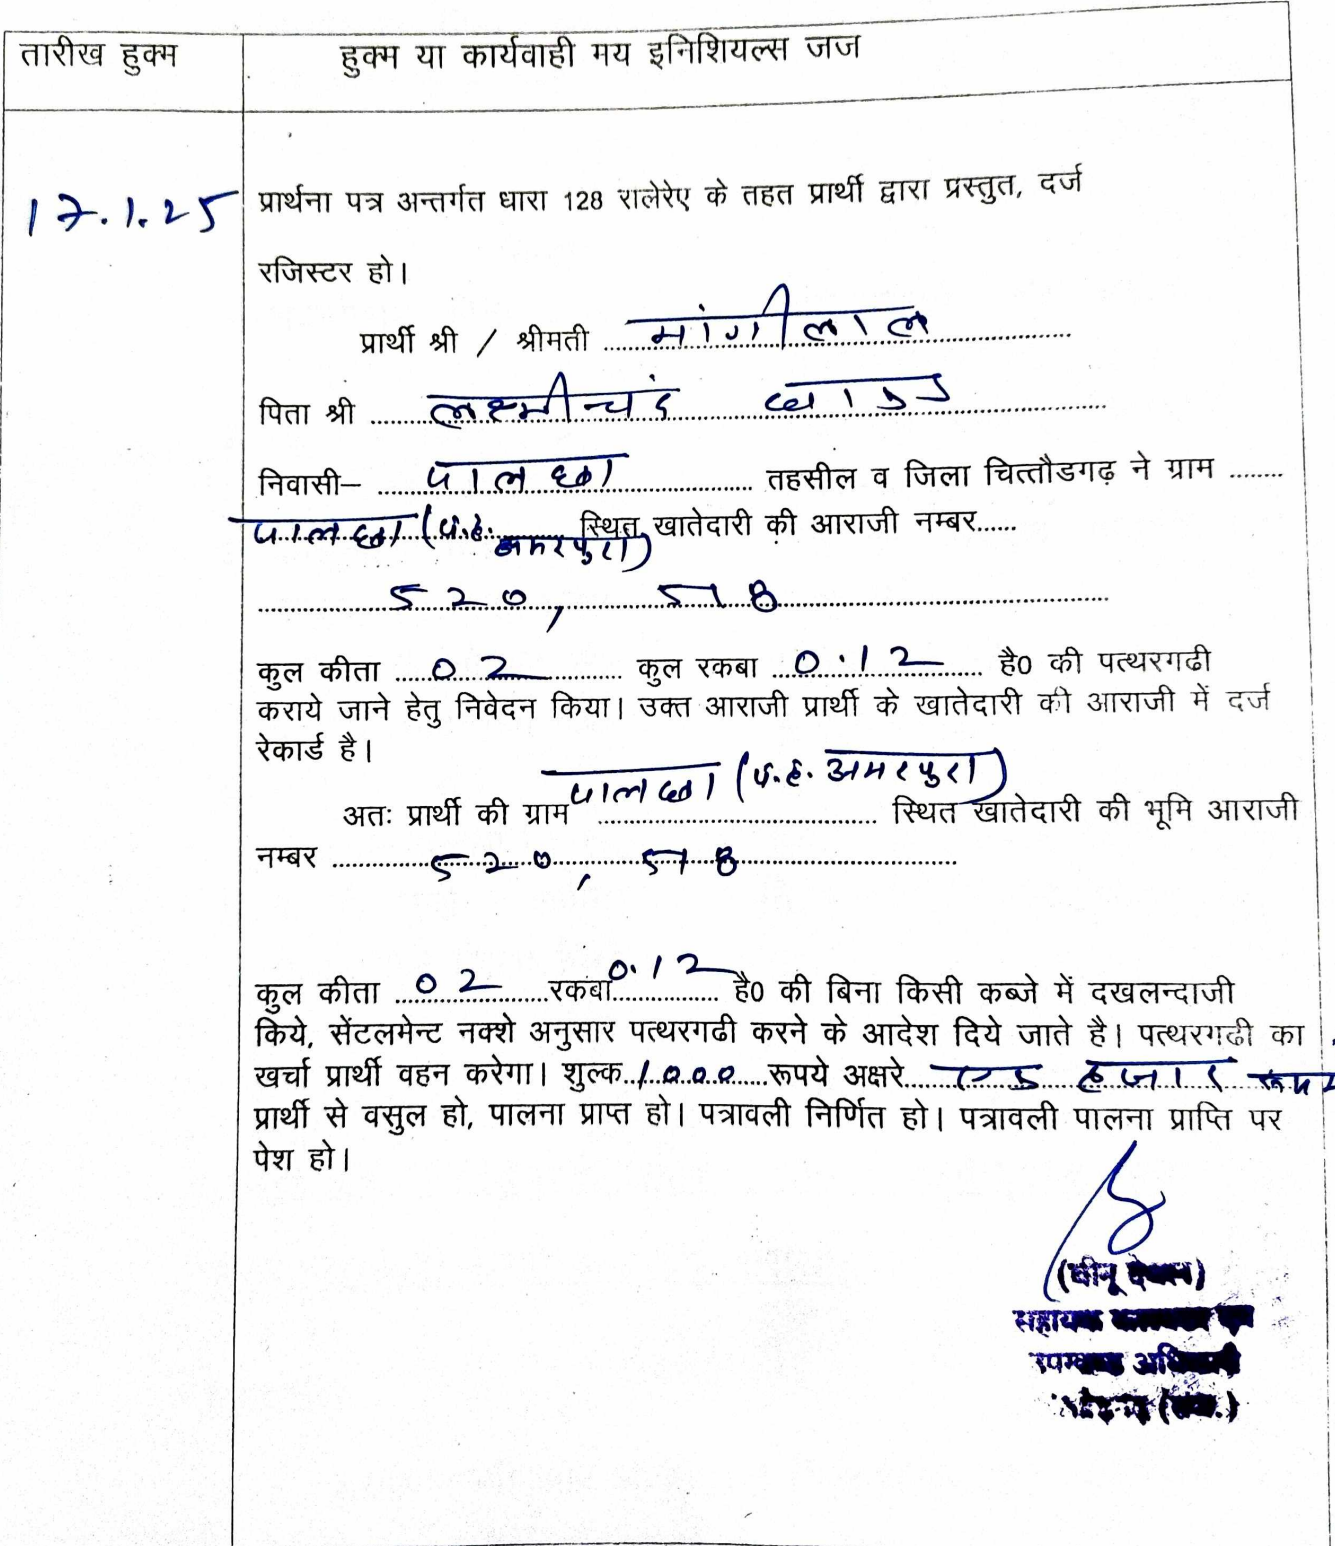 तारीख हुक्म
हुक्म या कार्यवाही मय इनिशियल्स जज
17.1.25
प्रार्थना पत्र अन्तर्गत धारा 128 रालेरेए के तहत प्रार्थी द्वारा प्रस्तुत, दर्ज
रजिस्टर हो।
प्रार्थी श्री / श्रीमती मांगीलाल
पिता श्री लक्ष्मीचंद
निवासी– पालछा तहसील व जिला चित्तौडगढ़ ने ग्राम ........
पालछा (प.ह. अमरपुरा) स्थित खातेदारी की आराजी नम्बर......
520, 518
कुल कीता 02 कुल रकबा 0.12 है0 की पत्थरगढी
कराये जाने हेतु निवेदन किया। उक्त आराजी प्रार्थी के खातेदारी की आराजी में दर्ज
रेकार्ड है।
अतः प्रार्थी की ग्राम पालछा (प.ह. अमरपुरा) स्थित खातेदारी की भूमि आराजी
नम्बर 520, 518
कुल कीता 02 रकबा 0.12 है0 की बिना किसी कब्जे में दखलन्दाजी
किये, सेंटलमेन्ट नक्शे अनुसार पत्थरगढी करने के आदेश दिये जाते है। पत्थरगढी का
खर्चा प्रार्थी वहन करेगा। शुल्क 1000 रूपये अक्षरे एक हजार रूपये
प्रार्थी से वसुल हो, पालना प्राप्त हो। पत्रावली निर्णित हो। पत्रावली पालना प्राप्ति पर
पेश हो।
सहायक